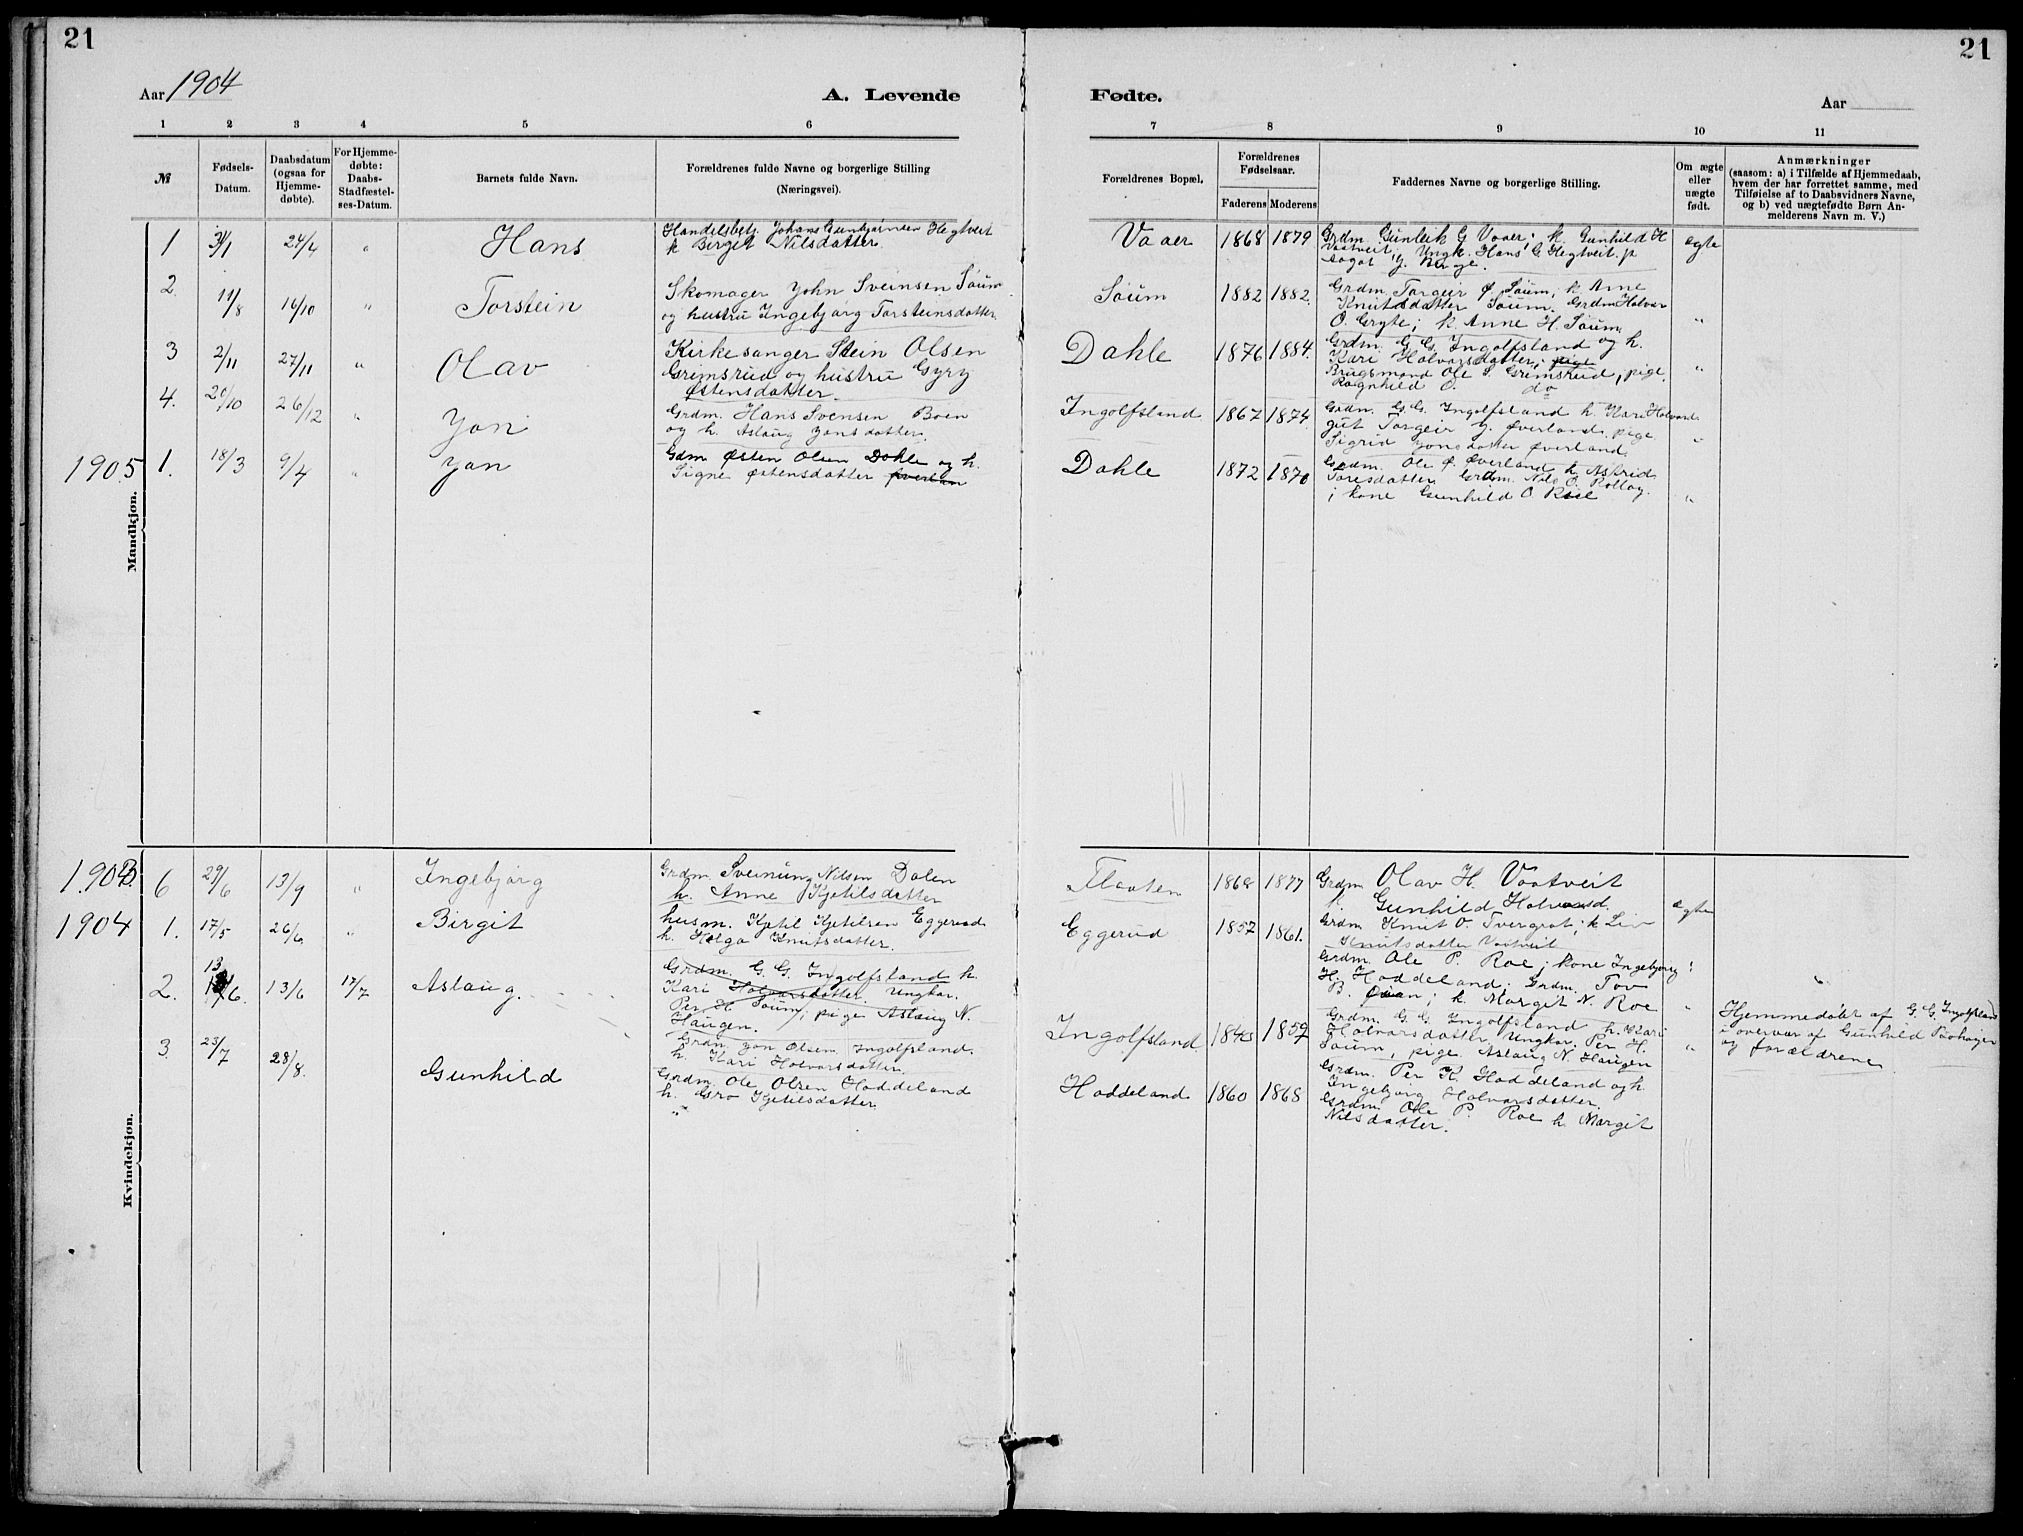 21
Aar 1904
A. Levende
1 2 3 4 5 6
№
Fødsels-
Datum.
Daabsdatum
(ogsaa for
Hjemme-
døbte).
For Hjemme-
døbte:
Daabs-
Stadfæstel-
ses-Datum.
Barnets fulde Navn.
Forældrenes fulde Navne og borgerlige Stilling
(Næringsvei).
Mandkjøn.
1 3/1 24/4 " Hans
Handelsbetj. Johans Gunbjørnsen Hegtveit
k Birgit Nilsdatter.
2. 11/8 16/10 " Torstein
Skomager John Sveinsen Søum
og hustru Ingebjørg Torsteinsdatter.
3 2/11 27/11 " Olav
Kirkesanger Stein Olsen
Grimsrud og hustru Gyry
Østensdatter.
4. 20/10 26/12 " Jon
Grdm. Hans Svensen Boen
og h. Aslaug Jonsdatter.
1905 1. 18/3 9/4 " Jon
Gdm Østen Olsen Dahle og h.
Signe Østensdatter
Kvindekjøn.
6 29/6 13/9 " Ingebjørg
Grdm. Sveinung Nilsen Dalen
h. Anne Kjetilsdatter
1904 1. 17/5 26/6 " Birgit
husm. Kjetil Kjetilsen Eggerud
h. Helga Knutsdatter.
2. 13/6. 13/6 17/7 Aslaug.
Grdm. G. G. Ingolfsland h.
Kari Holvarsdatter. Ungkar.
Per H Søum; pige Aslaug N.
Haugen.
Grdm Jon Olsen Ingolfsland.
h. Kari Holvarsdatter.
3. 23/7 28/8. Gunhild
Grdm. Ole Olsen Haddeland
h. Gro Kjetilsdatter
21
Fødte.
Aar
7 8 9 10 11
Forældrenes Bopæl.
Forældrenes
Fødselsaar.
Faderens Moderens
Faddernes Navne og borgerlige Stilling.
Om ægte
eller
uægte
født.
Anmærkninger
(saasom: a) i Tilfælde af Hjemmedaab,
hvem der har forrettet samme, med
Tilføielse af to Daabsvidners Navne,
og b) ved uægtefødte Børn An-
melderens Navn m. V.)
Vaaer 1868 1879
Grdm. Gunleik G Vaaer; k. Gunhild H
Vaatveit; Ungk. Hans G Hegtveit. p
J. Berge.
ægte
Søum 1882 1882.
Grdm Torgeir Ø. Søum; k Anne
Knutsdatter Søum. Grdm Halvar
O. Gryte; k Anne H. Søum
"
Dahle 1876 1884.
Grdm. G. G. Ingolfsland og h.
Kari Holvarsdatter; pige
Brugsmand Ole S. Grimsrud, pige
Ragnhild O. do
"
Ingolfsland 1867 1874.
Grdm. G. G. Ingolfsland h. Kari Holvard.
gut Torgeir J. Øverland. pige
Sigrid Jonsdatter Øverland.
"
Dahle 1872 1870
Grdm. Ole Ø. Øverland k Astrid
Toresdatter Grdm. Nils O. Rollag
; kone Gunhild O. Roe
"
Flaaten 1868 1877
Grdm Olav H. Vaatveit
Gunhild Holvarsd.
ægte
Eggerud 1857 1861.
Grdm Knut O. Tvergrot; k Liv
Knutsdatter Vaatveit
Grdm. Ole P. Roe; kone Ingebjørg
H. Haddeland. Grdm. Tov
B. Øian; k. Margit N. Roe
"
Ingolfsland 1843 1859
Grdm. G. G. Ingolfsland h. Kari
Holvarsdatter, Ungkar. Per H.
Søum, pige Aslaug N. Haugen
"
Hjemmedøbt af G. G. Ingolfsland
i overvær af Gunhild
og forældrene
Haddeland 1860 1868
Grdm. Per K. Haddeland og h.
Ingebjørg Holvarsdatter.
Grdm. Ole P. Roe h. Margit
Nilsdatter.